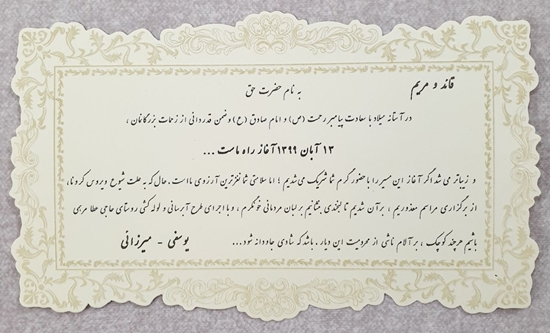 قائد و مریم
به نام حضرت حق
در آستانه میلاد با سعادت پیامبر رحمت (ص) و امام صادق (ع) و ضمن قدردانی از زحمات بزرگانمان ؛
۱۳ آبان ۱۳۹۹ آغاز راه ماست ...
و زیباتر می شد اگر آغاز این مسیر را با حضور گرم شما شریک می شدیم ؛ اما سلامتی شما نغزترین آرزوی ماست. حال که به علت شیوع ویروس کرونا،
از برگزاری مراسم معذوریم ، بر آن شدیم تا لبخندی بنشانیم بر لبان مردمانی خونگرم ، و با اجرای طرح آبرسانی و لوله کشی روستای حاجی عطا مرهمی
باشیم هر چند کوچک ، بر آلام ناشی از محرومیت این دیار . باشد که شادی جاودانه شود...
یوسفی - میرزائی